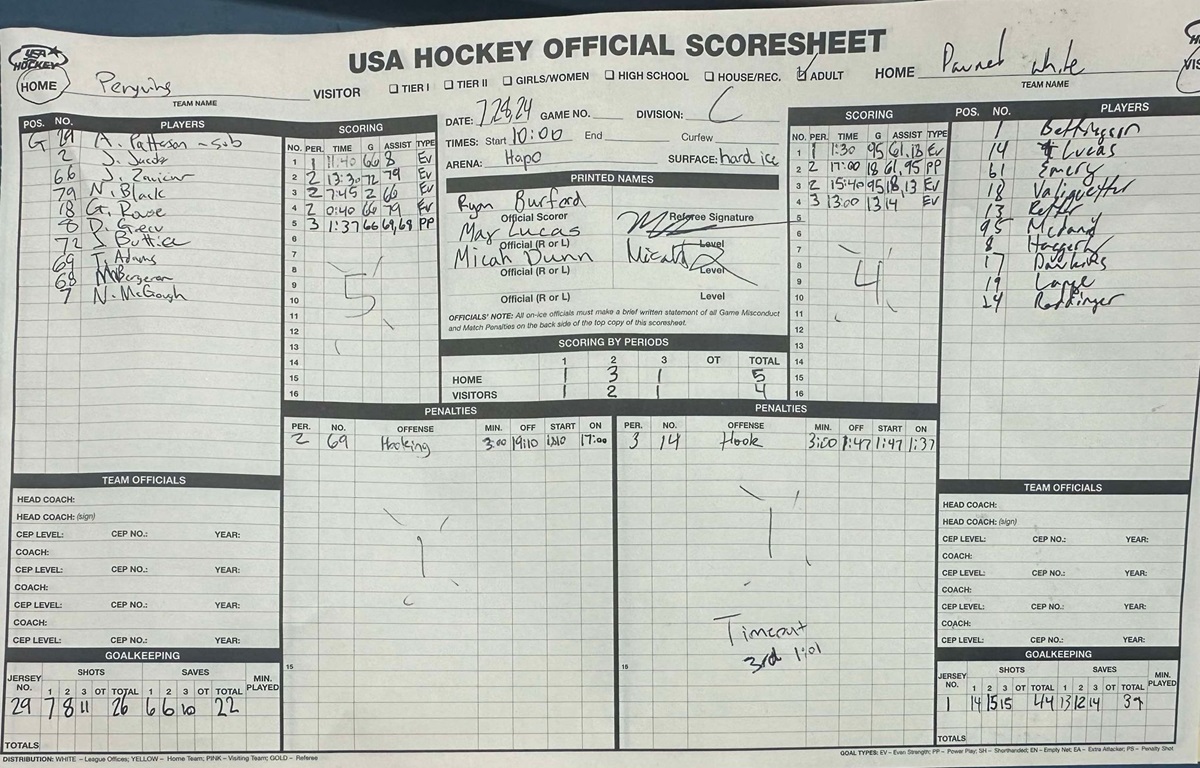 USA HOCKEY OFFICIAL SCORESHEET
USA HOCKEY
HOME Penguins VISITOR
TEAM NAME
☐ TIER I ☐ TIER II ☐ GIRLS/WOMEN ☐ HIGH SCHOOL ☐ HOUSE/REC. ☑ ADULT
HOME Pawned White
TEAM NAME
DATE: 7.28.24 GAME NO. DIVISION: C
TIMES: Start 10:00 End Curfew
ARENA: Hapo SURFACE: hard ice
POS. NO. PLAYERS
G 29 A Patterson - sub
2 J. Jacobs
66
79 N. Black
18 G. Rouse
8 D. Greer
72 J Buttice
69 T. Adams
68 M Bergeron
7 N. McGough
SCORING
NO. PER. TIME G ASSIST TYPE
1 1 11:40 66 8 Ev
2 2 13:30 72 79 Ev
3 2 7:45 2 66 Ev
4 2 0:40 66 79 Ev
5 3 1:37 66 69,68 PP
6
7
8
9
10
11
12
13
14
15
16
5
PRINTED NAMES
Ryan Burford
Official Scorer Referee Signature
Max Lucas
Official (R or L) Level
Micah Dunn Micah D
Official (R or L) Level
Official (R or L) Level
OFFICIALS' NOTE: All on-ice officials must make a brief written statement of all Game Misconduct
and Match Penalties on the back side of the top copy of this scoresheet.
SCORING BY PERIODS
1 2 3 OT TOTAL
HOME 1 3 1 5
VISITORS 1 2 1 4
SCORING
NO. PER. TIME G ASSIST TYPE
1 1 1:30 95 61,18 Ev
2 2 17:00 18 61,95 PP
3 2 15:40 95 18,13 Ev
4 3 13:00 13 14 Ev
5
6
7
8
9
10
11
12
13
14
15
16
4
POS. NO. PLAYERS
1
14 Lucas
61 Emery
18
13
95
8
17 Dawkins
19 Lange
24
PENALTIES
PER. NO. OFFENSE MIN. OFF START ON
2 69 Hooking 3:00 19:10 17:00
1
15
PENALTIES
PER. NO. OFFENSE MIN. OFF START ON
3 14 Hook 3:00 1:47 1:47 1:37
1
Timeout
3rd 1:01
15
TEAM OFFICIALS
HEAD COACH:
HEAD COACH: (sign)
CEP LEVEL: CEP NO.: YEAR:
COACH:
CEP LEVEL: CEP NO.: YEAR:
COACH:
CEP LEVEL: CEP NO.: YEAR:
COACH:
CEP LEVEL: CEP NO.: YEAR:
GOALKEEPING
SHOTS SAVES
JERSEY NO. 1 2 3 OT TOTAL 1 2 3 OT TOTAL MIN. PLAYED
29 7 8 11 26 6 6 10 22
TOTALS
TEAM OFFICIALS
HEAD COACH:
HEAD COACH: (sign)
CEP LEVEL: CEP NO.: YEAR:
COACH:
CEP LEVEL: CEP NO.: YEAR:
COACH:
CEP LEVEL: CEP NO.: YEAR:
COACH:
CEP LEVEL: CEP NO.: YEAR:
GOALKEEPING
SHOTS SAVES
JERSEY NO. 1 2 3 OT TOTAL 1 2 3 OT TOTAL MIN. PLAYED
1 14 15 15 44 13 12 14 39
TOTALS
DISTRIBUTION: WHITE – League Offices; YELLOW – Home Team; PINK – Visiting Team; GOLD – Referee
GOAL TYPES: EV – Even Strength; PP – Power Play; SH – Shorthanded; EN – Empty Net; EA – Extra Attacker; PS – Penalty Shot